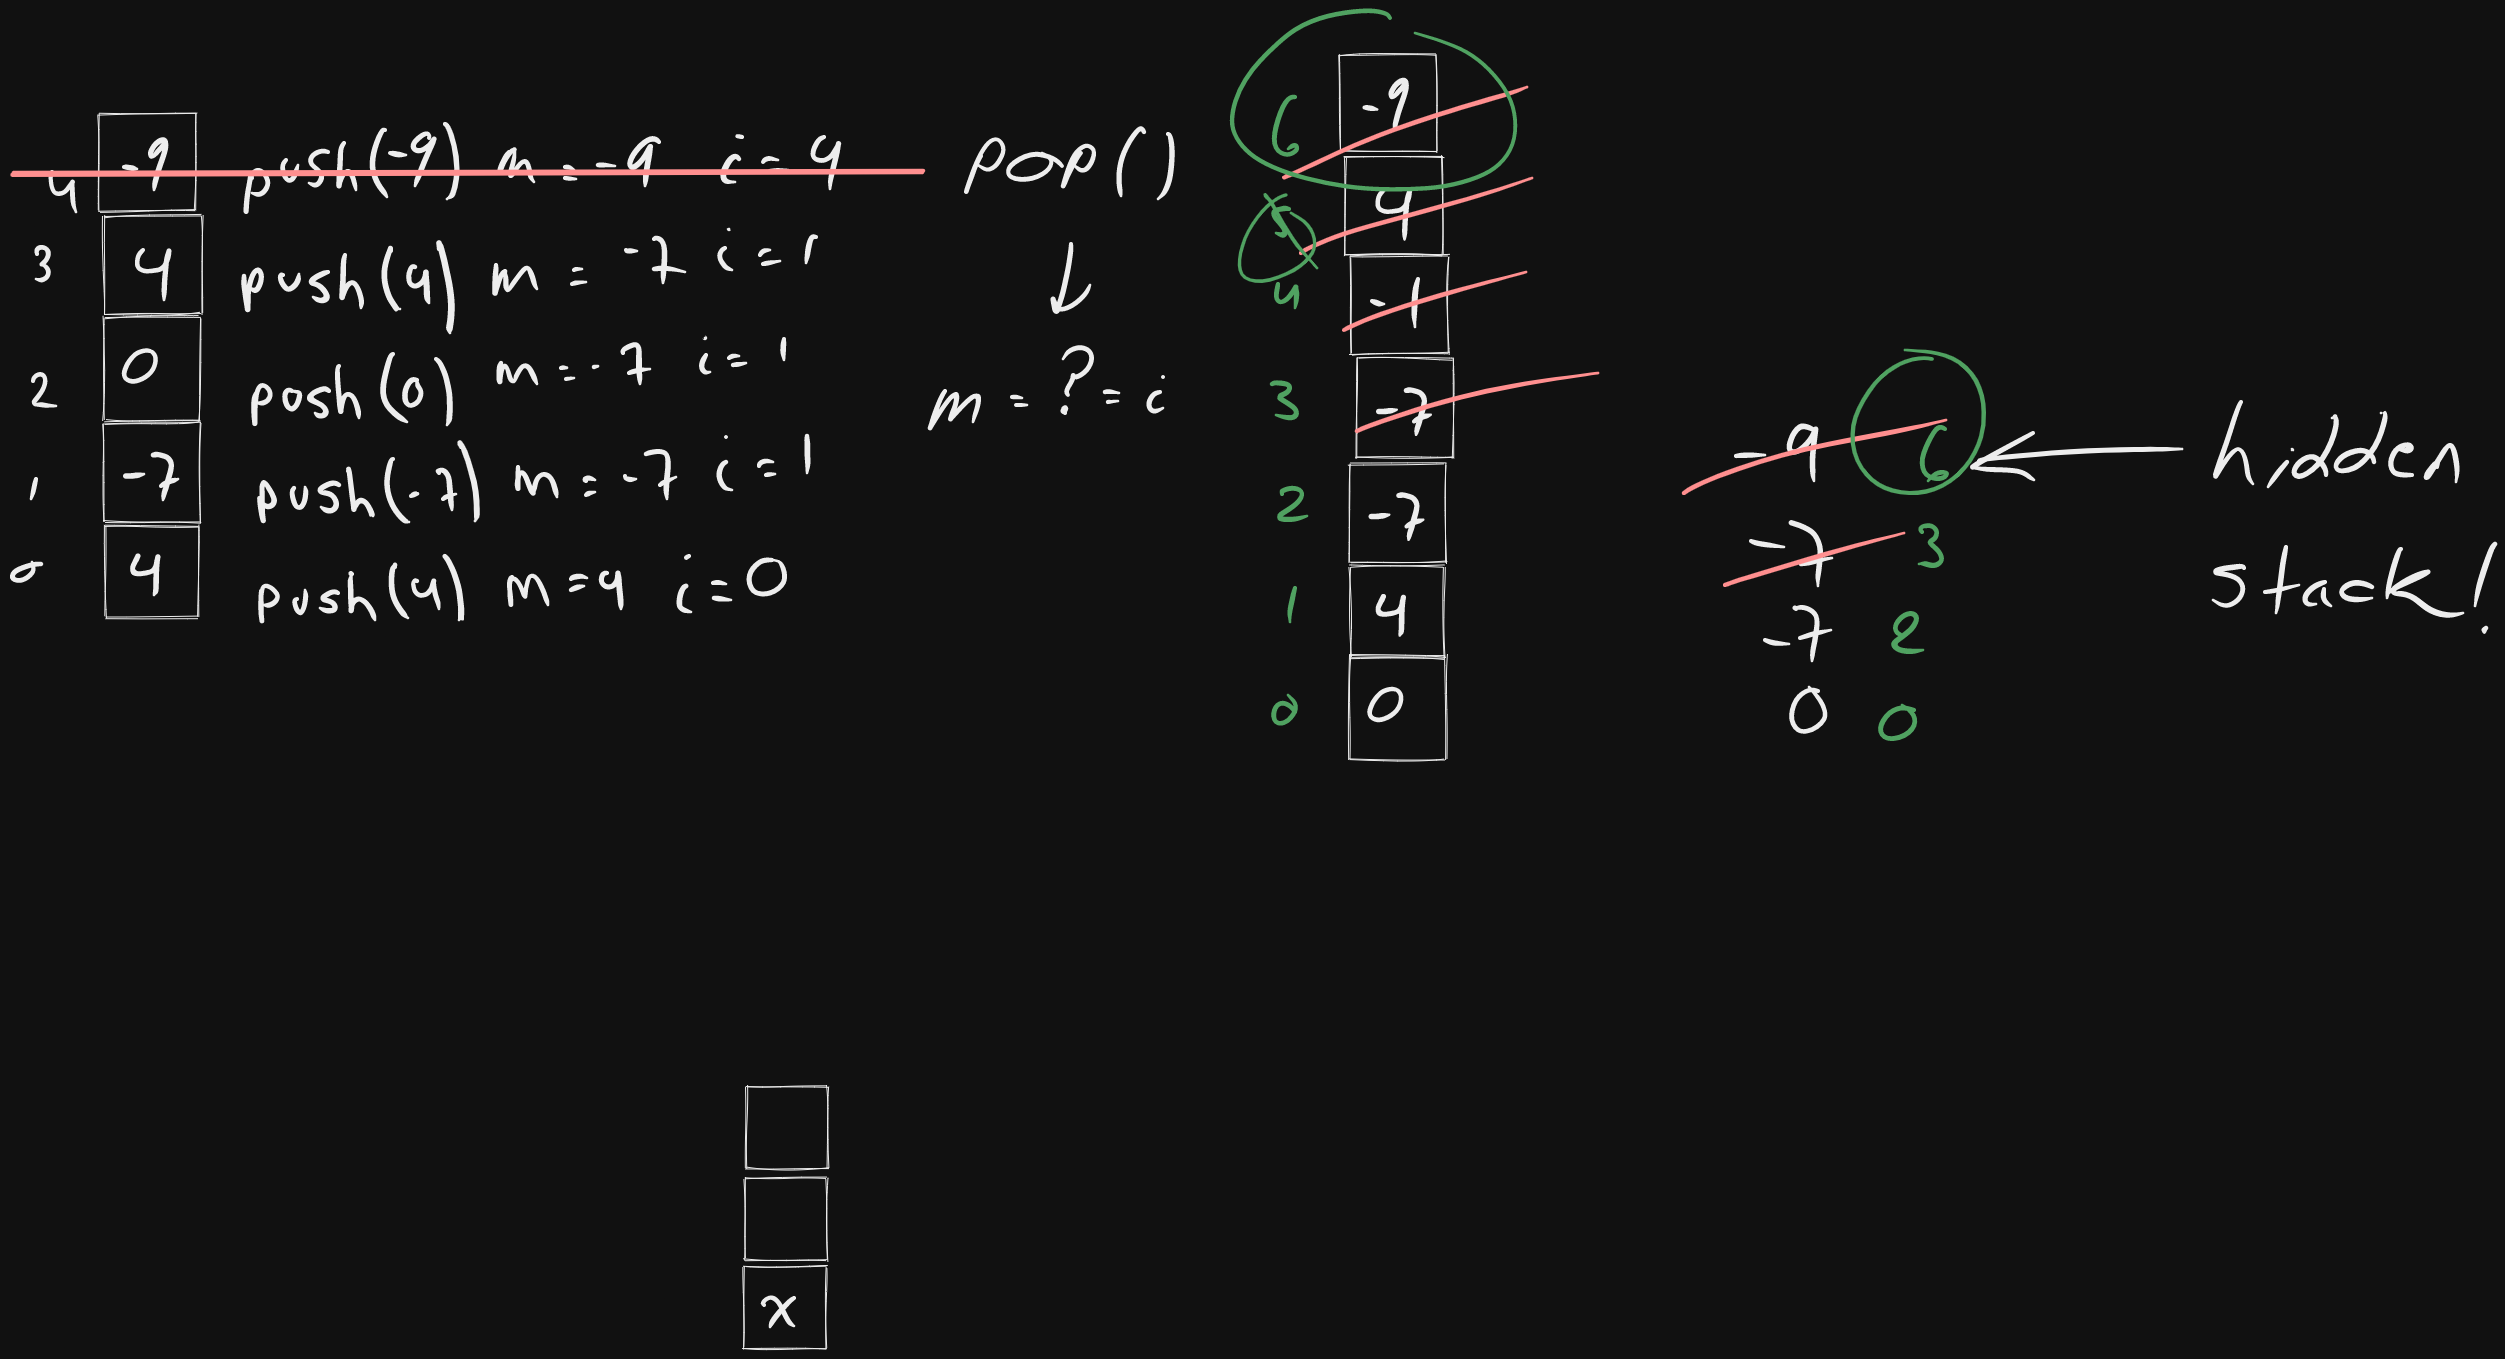 4 -9 push(-9) m = -9 i = 4 pop()
3 4 push(4) m = -7 i = 1
2 0 push(0) m = -7 i = 1
1 -7 push(-7) m = -7 i = 1
0 4 push(4) m = 4 i = 0
m = ? = i
6 -9
5 4
4 -1
3 -7
2 -7
1 4
0 0
-9 6
-7 3
-7 2
0 0
hidden
stack!
x